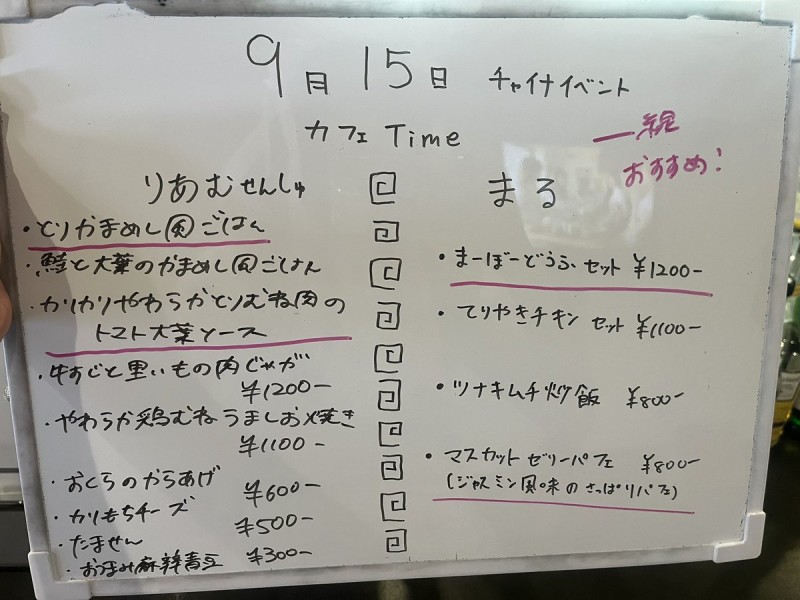 9月15日 チャイナイベント
カフェ Time
一絵
おすすめ!
りあむせんしゅ
・とりかまめし風ごはん
・鮭と大葉のかまめし風ごはん
・かりかりやわらかとりむね肉の
トマト大葉ソース
・牛すじと里いもの肉じゃが
¥1200-
・やわらか鶏むねうましお焼き
¥1100-
・おくらのからあげ ¥600-
・かりもちチーズ ¥500-
・たません
・おつまみ麻辣青豆 ¥300-
まる
・まーぼーどうふ セット ¥1200-
・てりやきチキン セット ¥1100-
・ツナキムチ炒飯 ¥800-
・マスカットゼリーパフェ ¥800-
(ジャスミン風味のさっぱりパフェ)